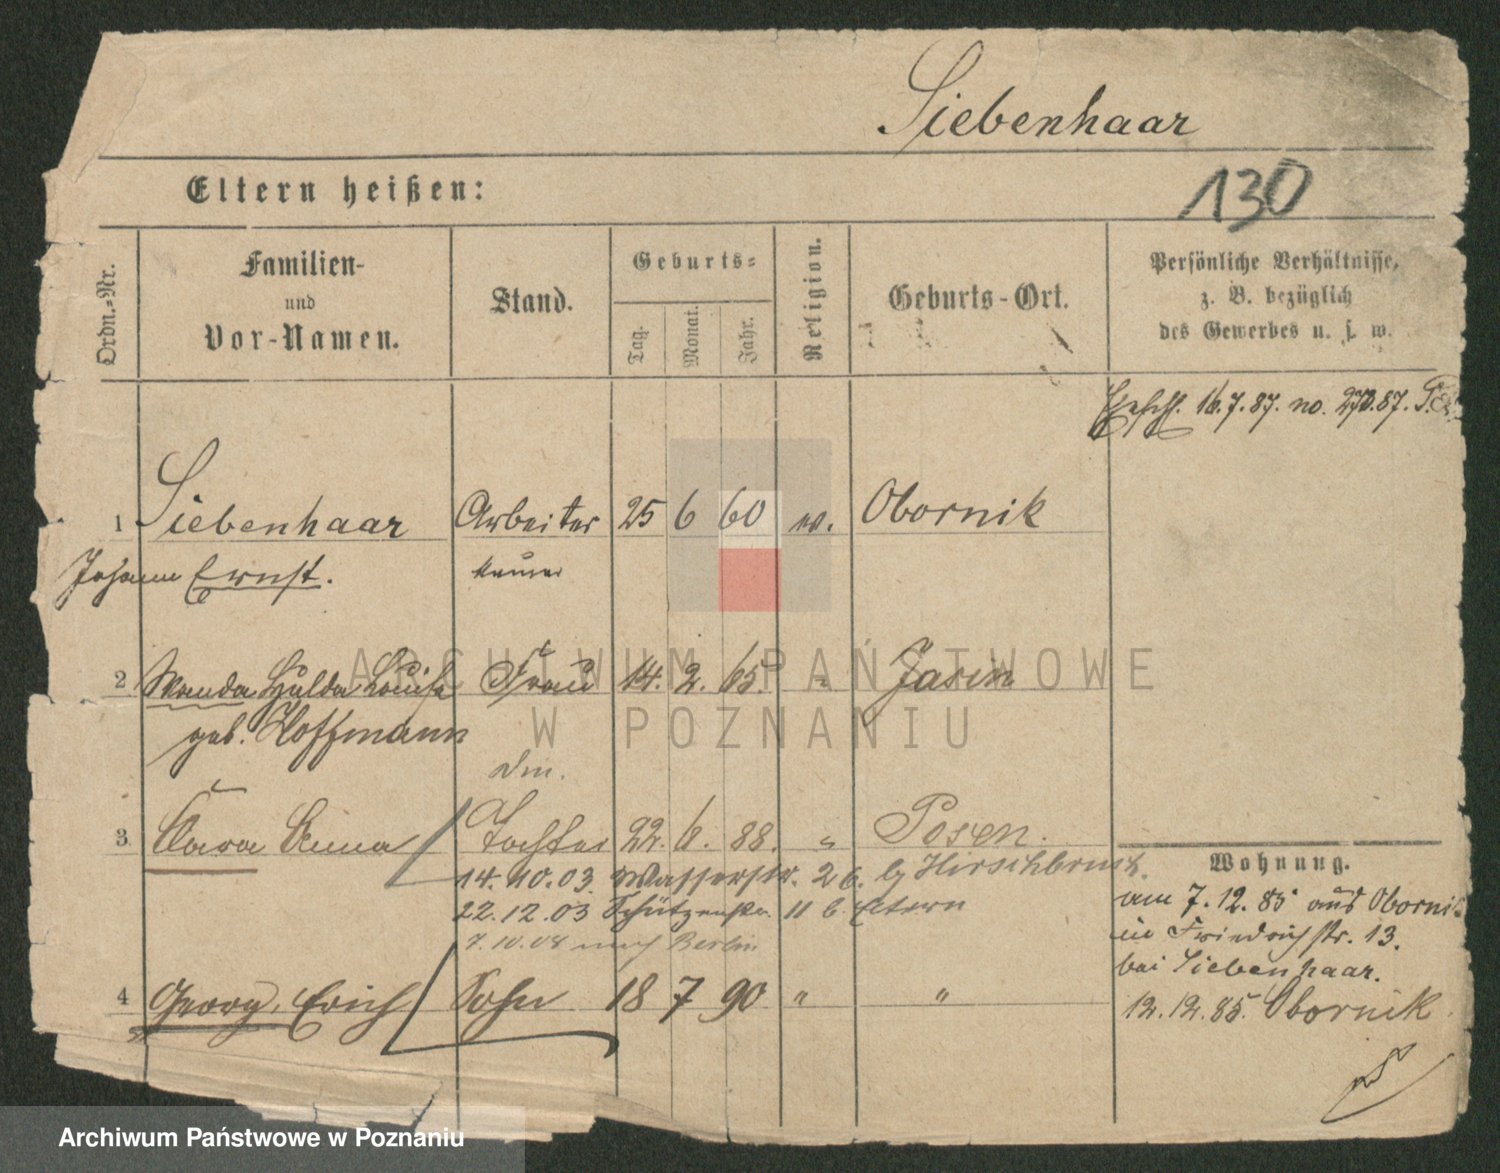 Siebenhaar
130
Eltern heißen:
Ordn.-Nr.
Familien- und Vor-Namen.
Stand.
Geburts-
Tag.
Monat.
Jahr.
Religion.
Geburts-Ort.
Persönliche Verhältnisse, z. B. bezüglich des Gewerbes u. s. w.
16.7.87. no.
1 Siebenhaar Arbeiter 25 6 60 ev. Obornik
Johann Ernst.
2 Wanda Hulda Louise Frau 14. 2. 65. " Jasin
geb. Hoffmann
3 Clara Anna Tochter 22. 6. 88. " Posen.
14. 10. 03. Wasserstr. 26. b/ Hirschbruch.
22.12.03 Schützenstr. 11 b. Eltern
7.10.08 nach Berlin
4 Georg, Erich Sohn 18 7 90 " "
Wohnung.
am 7.12.85 aus Obornik
in Friedrichstr. 13.
bei Siebenhaar.
12.12.85. Obornik
ARCHIWUM PAŃSTWOWE
W POZNANIU
Archiwum Państwowe w Poznaniu